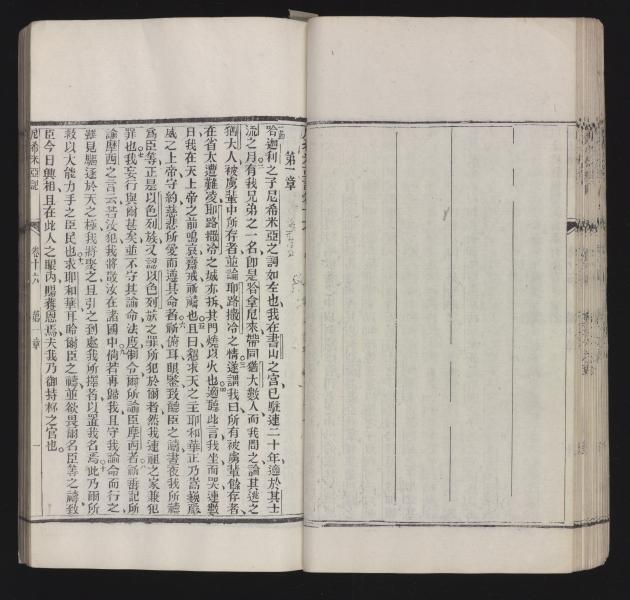 第一章
哈迦利之子尼希米亞之詞如左也我在書山之宮已駐連二十年適於其士
流之月有我兄弟之一名卽是哈拿尼來帶同猶大數人而我問之論其逃之
猶大人被虜輩中所存者並論耶路撒冷之情遂謂我曰所有被虜輩餘存者
在省太遭難凌耶路撒冷之城亦拆其門燒以火也適聽此言我坐而哭連數
日我在天上帝之前鳴哀齋戒祈禱也且曰懇求天之主耶和華正乃嵩巍嚴
威之上帝守約慈悲所愛而遵其命者祈俯耳眼鑒致聽臣之禱晝夜我所禱
爲臣等正是以色列族又認以色列族之罪所犯於爾者然我連祖之家兼犯
罪也我妄行與爾甚矣並不守其諭命法度制令爾所諭臣摩西者祈垂記所
諭摩西之言云若汝犯我將散汝在諸國中倘若再歸我且守我諭命而行之
雖見驅逐於天之極我將聚之且引之到處我所擇者以置我名焉此乃爾所
救以大能力手之臣民也求耶和華耳聆爾臣之禱並欲畏爾名臣等之禱致
臣今日興相且在此人之眼內賜獲恩焉夫我乃御持杯之官也
尼希米亞記 卷十六 第一章 一